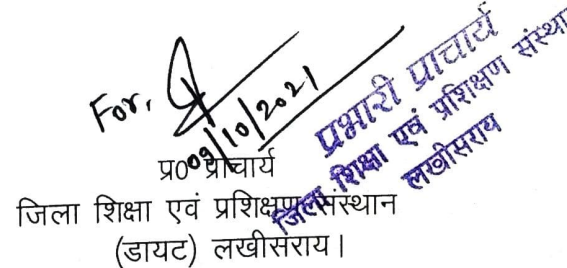 For,
09/10/2021
प्र० प्राचार्य
जिला शिक्षा एवं प्रशिक्षण संस्थान
(डायट) लखीसराय।
प्रभारी प्राचार्य
जिला शिक्षा एवं प्रशिक्षण संस्थान
लखीसराय